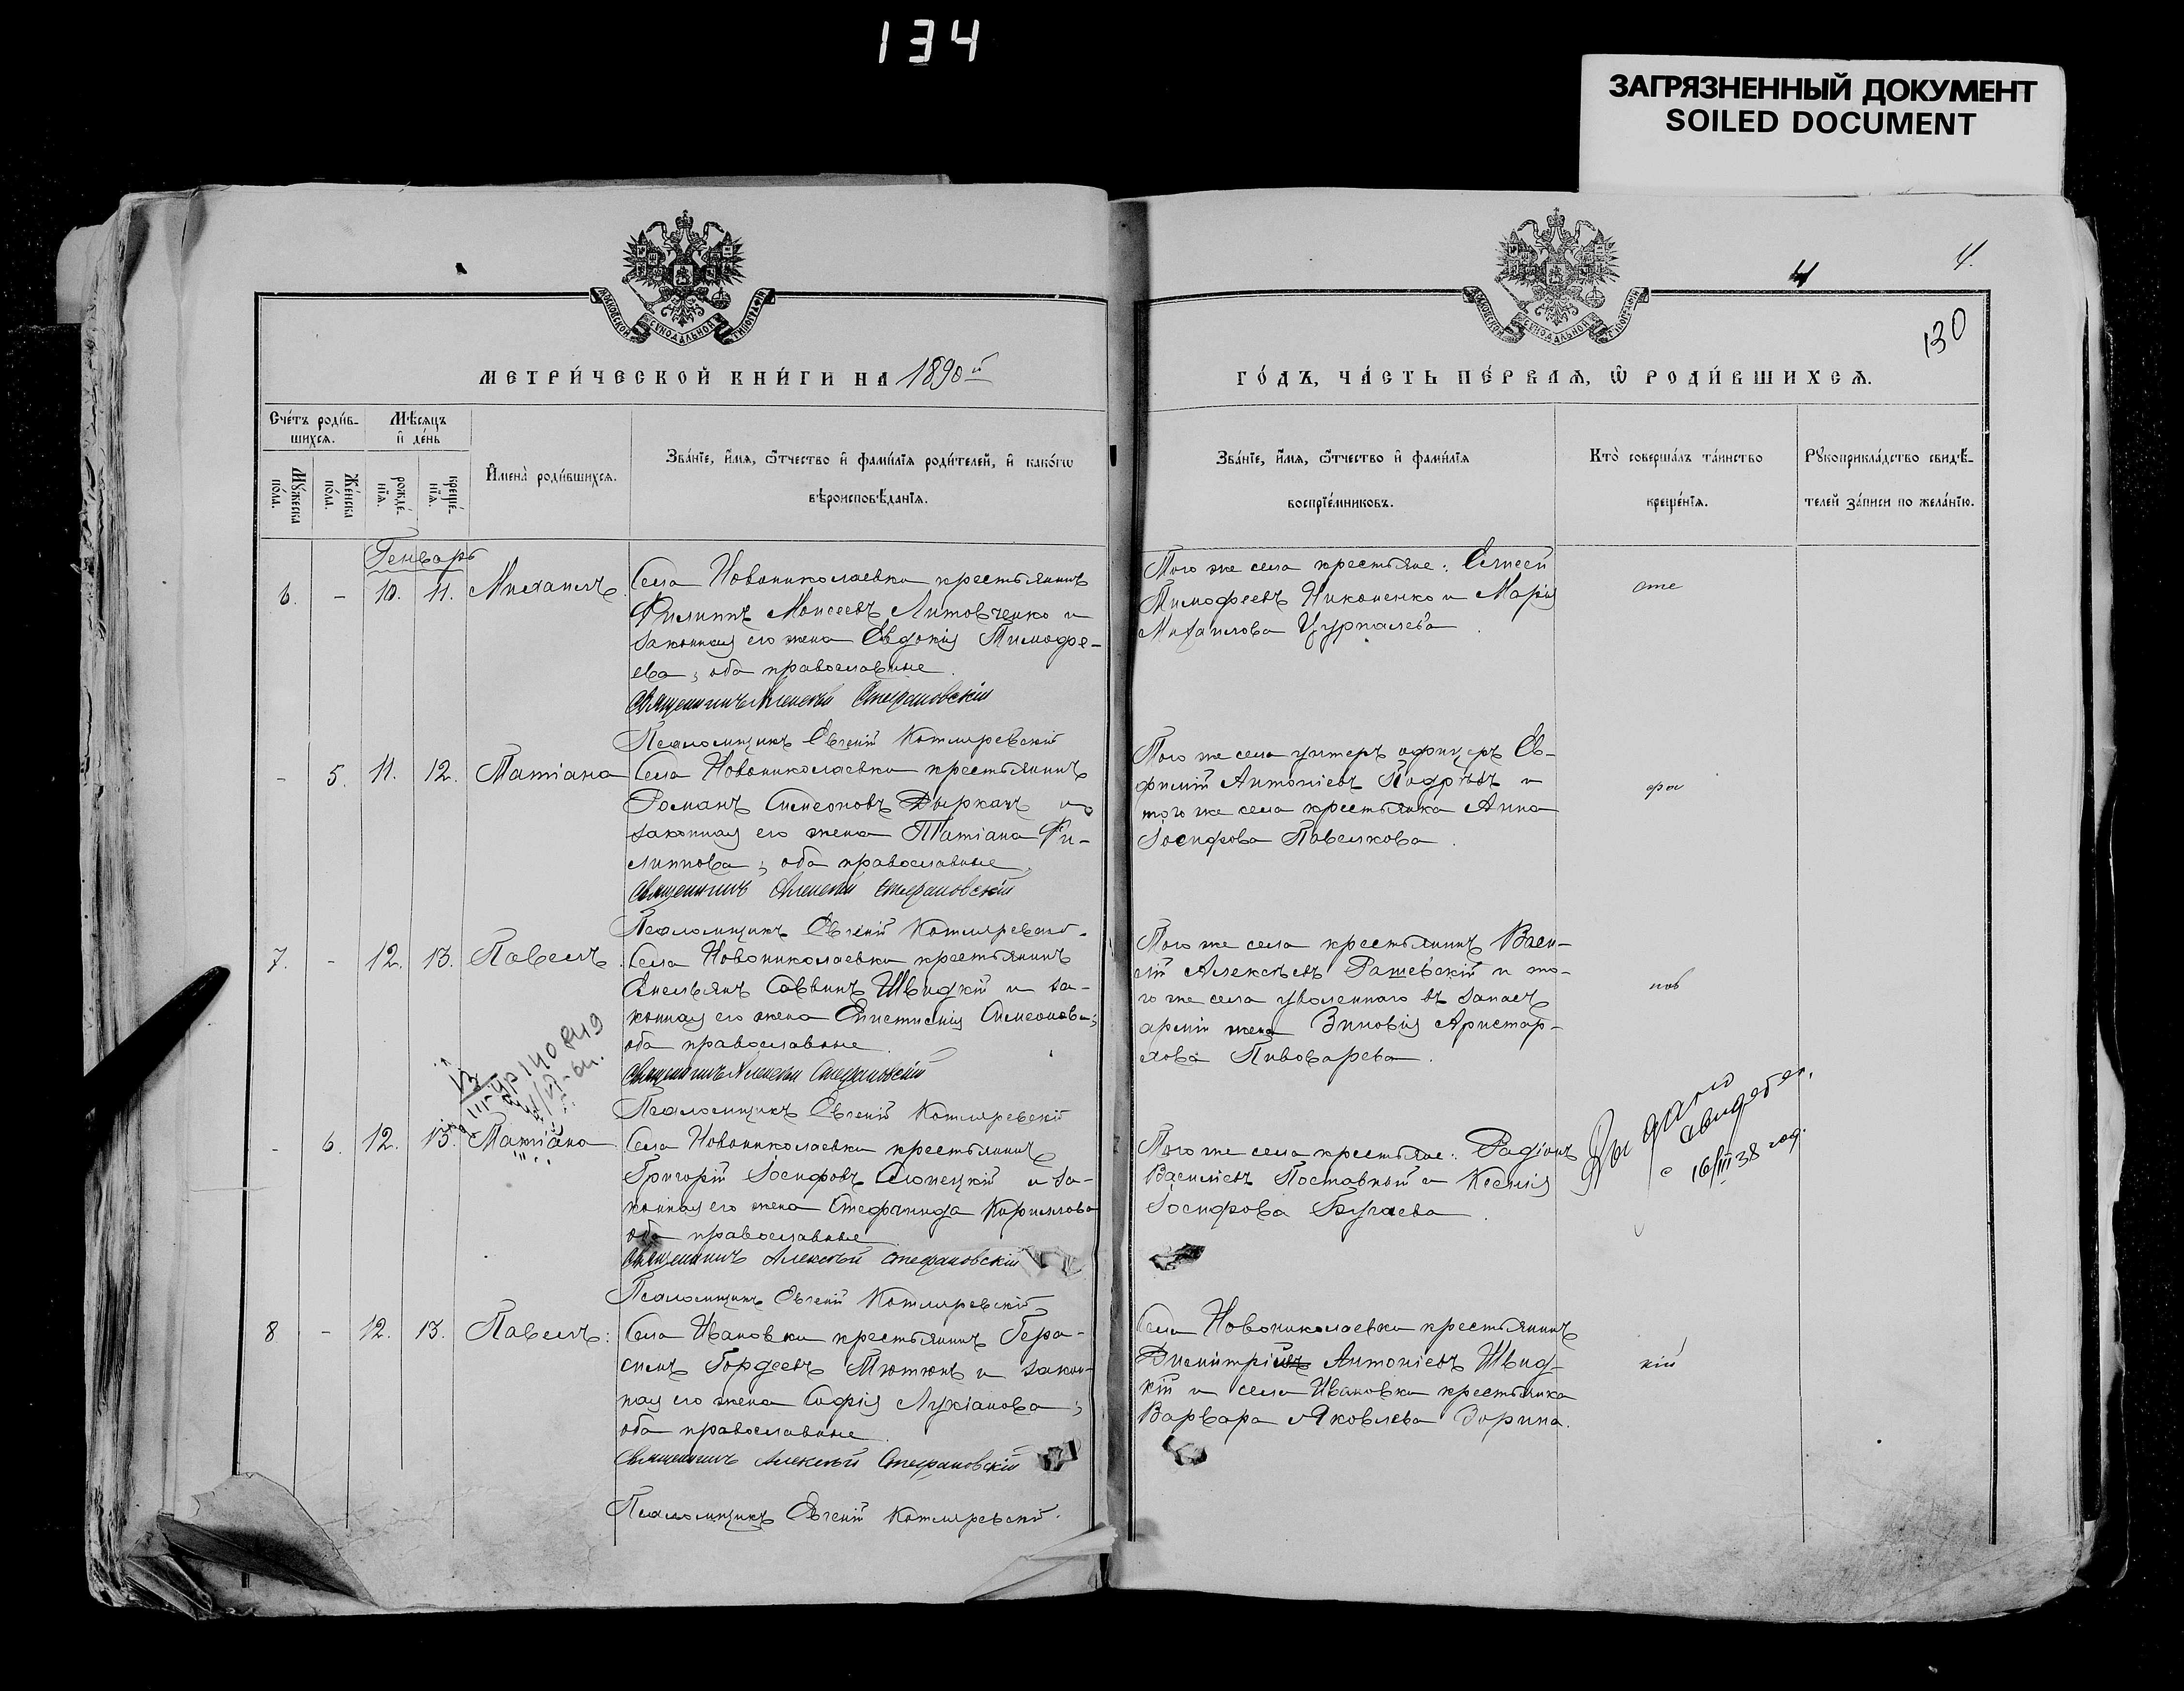 134
ЗАГРЯЗНЕННЫЙ ДОКУМЕНТ
SOILED DOCUMENT
4
4.
130
МОСКОВСКОЙ СѴНОДАЛЬНОЙ ТИПОГРАФІИ
МОСКОВСКОЙ СѴНОДАЛЬНОЙ ТИПОГРАФІИ
МЕТРИ́ЧЕСКОЙ КНИ́ГИ НА 1890й
ГО́ДЪ, ЧА́СТЬ ПЕ́РВАѦ, Ѿ РОДИ́ВШИХСѦ.
Сче́тъ роди́в-
шихсѧ.
Мѣ́сѧцъ
и҆ де́нь
Мꙋ́жеска
по́ла.
Же́нска
по́ла.
рожде́-
нїѧ.
креще́-
нїѧ.
И҆мена̀ роди́вшихсѧ.
Зва́нїе, и҆́мѧ, ѻ҆́тчество и҆ фами́лїѧ роди́телей, и҆ како́гѡ
вѣроисповѣ́данїѧ.
Зва́нїе, и҆́мѧ, ѻ҆́тчество и҆ фами́лїѧ
воспрїе́мниковъ.
Кто̀ соверша́лъ та́инство
креще́нїѧ.
Рꙋкоприкла́дство свидѣ́-
телей за́писи по жела́нїю.
Генварь
6. - 10. 11. Михаилъ.
Села Новониколаевки крестьянинъ
Филиппъ Моисеевъ Литовченко и
законная его жена Евдокія Тимофе-
ева; оба православные.
Священникъ Алексѣй Стефановскій
Псаломщикъ Евгеній Котляревскій
Того же села крестьяне: Елисей
Тимофеевъ Никоненко и Марія
Михаилова Цуркалева.
сте
- 5. 11. 12. Татіана
Села Новониколаевки крестьянинъ
Романъ Симеоновъ Дыркачъ и
законная его жена Татіана Фи-
липпова; оба православные.
Священникъ Алексѣй Стефановскій
Псаломщикъ Евгеній Котляревскій.
Того же села унтеръ офицеръ Ев-
фимій Антоніевъ и
того же села крестьянка Анна
Іосифова Павелкова.
фа
7. - 12. 13. Павелъ.
Села Новониколаевки крестьянинъ
Емельянъ Саввинъ Швидкій и за-
конная его жена Епистимія Симеонова;
оба православные.
Священникъ Алексѣй Стефановскій
Псаломщикъ Евгеній Котляревскій
Того же села крестьянинъ Васи-
лій Алексѣевъ Рашевскій и то-
го же села уволеннаго въ запасъ
арміи жена Зиновія Аристар-
хова Пивоварева.
нов
- 6. 12. 13. Татіана
Села Новониколаевки крестьянинъ
Григорій Іосифовъ Слонецкій и за-
конная его жена Стефанида Кириллова
оба православные
Священникъ Алексѣй Стефановскій
Псаломщикъ Евгеній Котляревскій
Того же села крестьяне: Радіонъ
Василіевъ Поставный и Ксенія
Іосифова Бугаева.
Выдано
свидет.
с 16/III 38 год.
8. - 12. 13. Павелъ:
Села Ивановки крестьянинъ Гера-
симъ Гордеевъ Тютюнъ и закон-
ная его жена Софія Лукіанова;
оба православные.
Священникъ Алексѣй Стефановскій
Псаломщикъ Евгеній Котляревскій.
Села Новониколаевки крестьянинъ
Димитрій Антоніевъ Швид-
кій и села Ивановки крестьянка
Варвара Яковлева Зорина.
кій